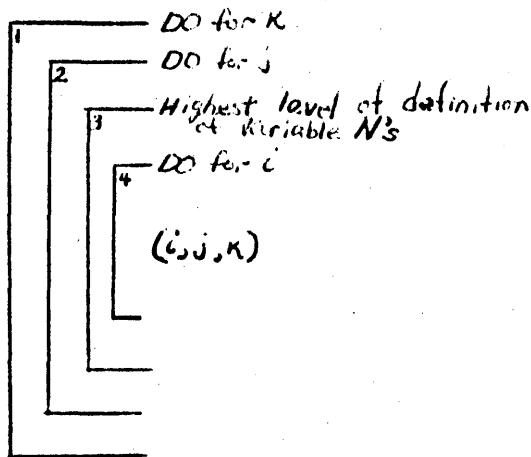 1 DO for k
2 DO for j
3 Highest level of definition
of Variable N's
4 DO for i
(i, j, k)